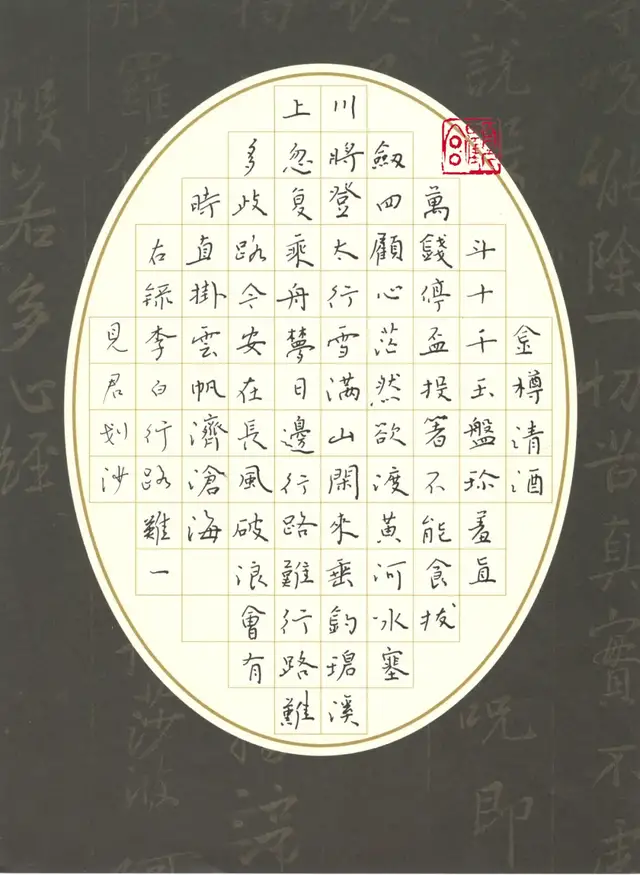 金樽清酒
斗十千玉盤珍羞直
萬錢停盃投箸不能食拔
劔四顧心茫然欲渡黃河冰塞
川將登太行雪满山閑來垂釣碧溪
上忽复乘舟夢日邊行路難行路難
多歧路今安在長風破浪會有
時直掛雲帆濟滄海
右録李白行路難一
見君划沙
除一切苦真實不虛
咒即
若多心經